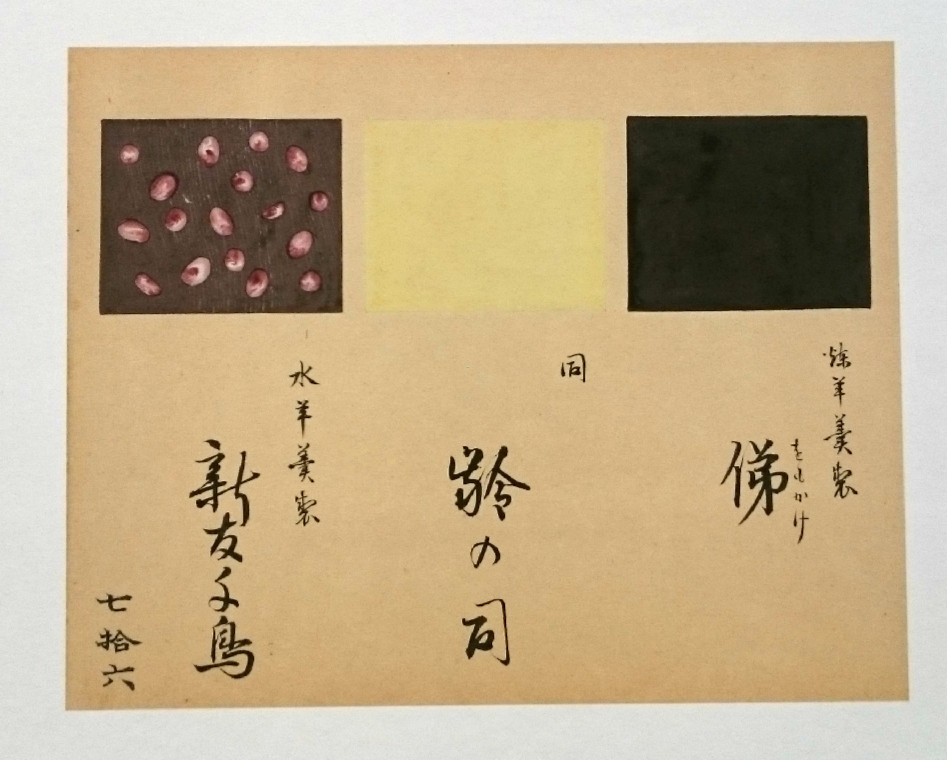 煉羊羹製
俤
をもかけ
同
齢の司
水羊羹製
新友千鳥
七拾六